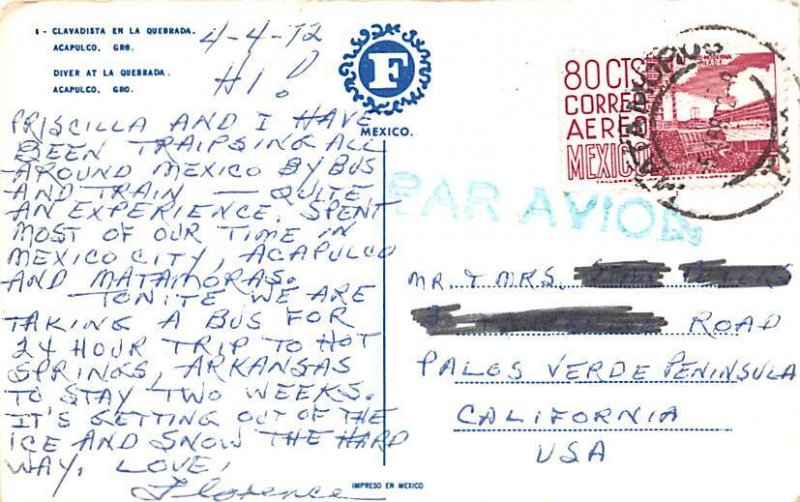 6 - CLAVADISTA EN LA QUEBRADA.
ACAPULCO, GRO.
DIVER AT LA QUEBRADA.
ACAPULCO, GRO.
4-4-72
HI!
PRISCILLA AND I HAVE
BEEN TRAIPSING ALL
AROUND MEXICO BY BUS
AND TRAIN — QUITE
AN EXPERIENCE. SPENT
MOST OF OUR TIME IN
MEXICO CITY, ACAPULCO
AND MATAMORAS.
TONITE WE ARE
TAKING A BUS FOR
24 HOUR TRIP TO HOT
SPRINGS, ARKANSAS
TO STAY TWO WEEKS.
IT'S GETTING OUT OF THE
ICE AND SNOW THE HARD
WAY. LOVE,
Florence
F
MEXICO.
80 CTS
CORREO
AEREO
MEXICO
PAR AVION
MR. & MRS.
ROAD
PALOS VERDE PENINSULA
CALIFORNIA
USA
IMPRESO EN MEXICO